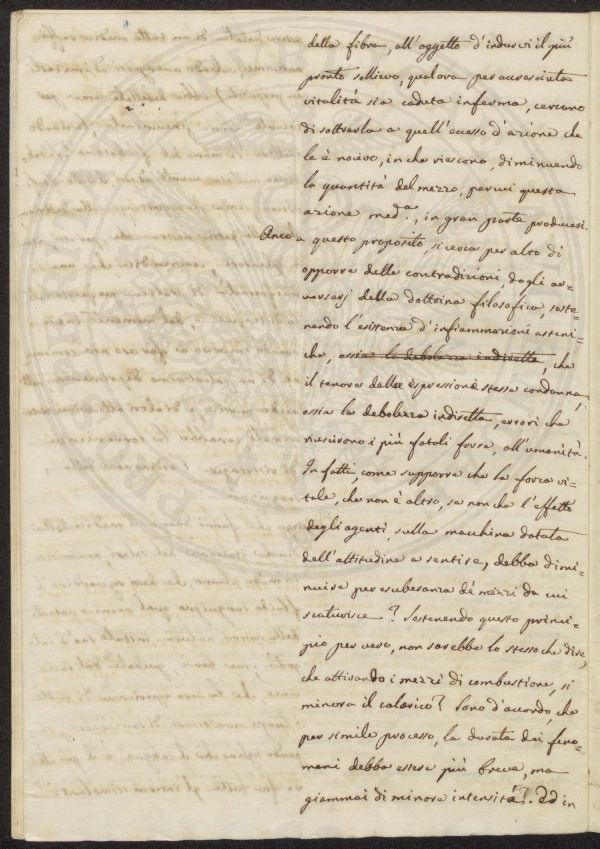 della fibra, all'oggetto d'indurvi il più
pronto sollievo, qualora per accresciuta
vitalità sia caduta inferma, cercano
di sottrarla a quell'eccesso d'azione che
le è nocivo, in che riescono, diminuendo
la quantità del mezzo, per cui questa
azione med.a, in gran parte producesi.
Anco a questo proposito, si cerca per alto di
opporre delle contradizioni, dagli av=
versarj della dottrina filosofica, soste=
nendo l'esistenza d'infiammazioni asteni=
che, ossia la debolezza indiretta, che
il tenore della espressione stessa condanna,
ossia la debolezza indiretta, errori che
riuscirono i più fatali forse, all'umanità.
In fatti, come supporre che la forza vi=
tale, che non è altro, se non che l'effetto
degli agenti, sulla macchina dotata
dell'attitudine a sentire, debba dimi=
nuire per esuberanza dé mezzi da cui
scaturisce? Sostenendo questo princi=
pio per vero, non sarebbe lo stesso che dire,
che attivando i mezzi di combustione, si
minora il calorico? Sono d'accordo, che
per simile processo, la durata dei feno=
meni debba essere più breve, ma
giammai di minore intensità. Ed in